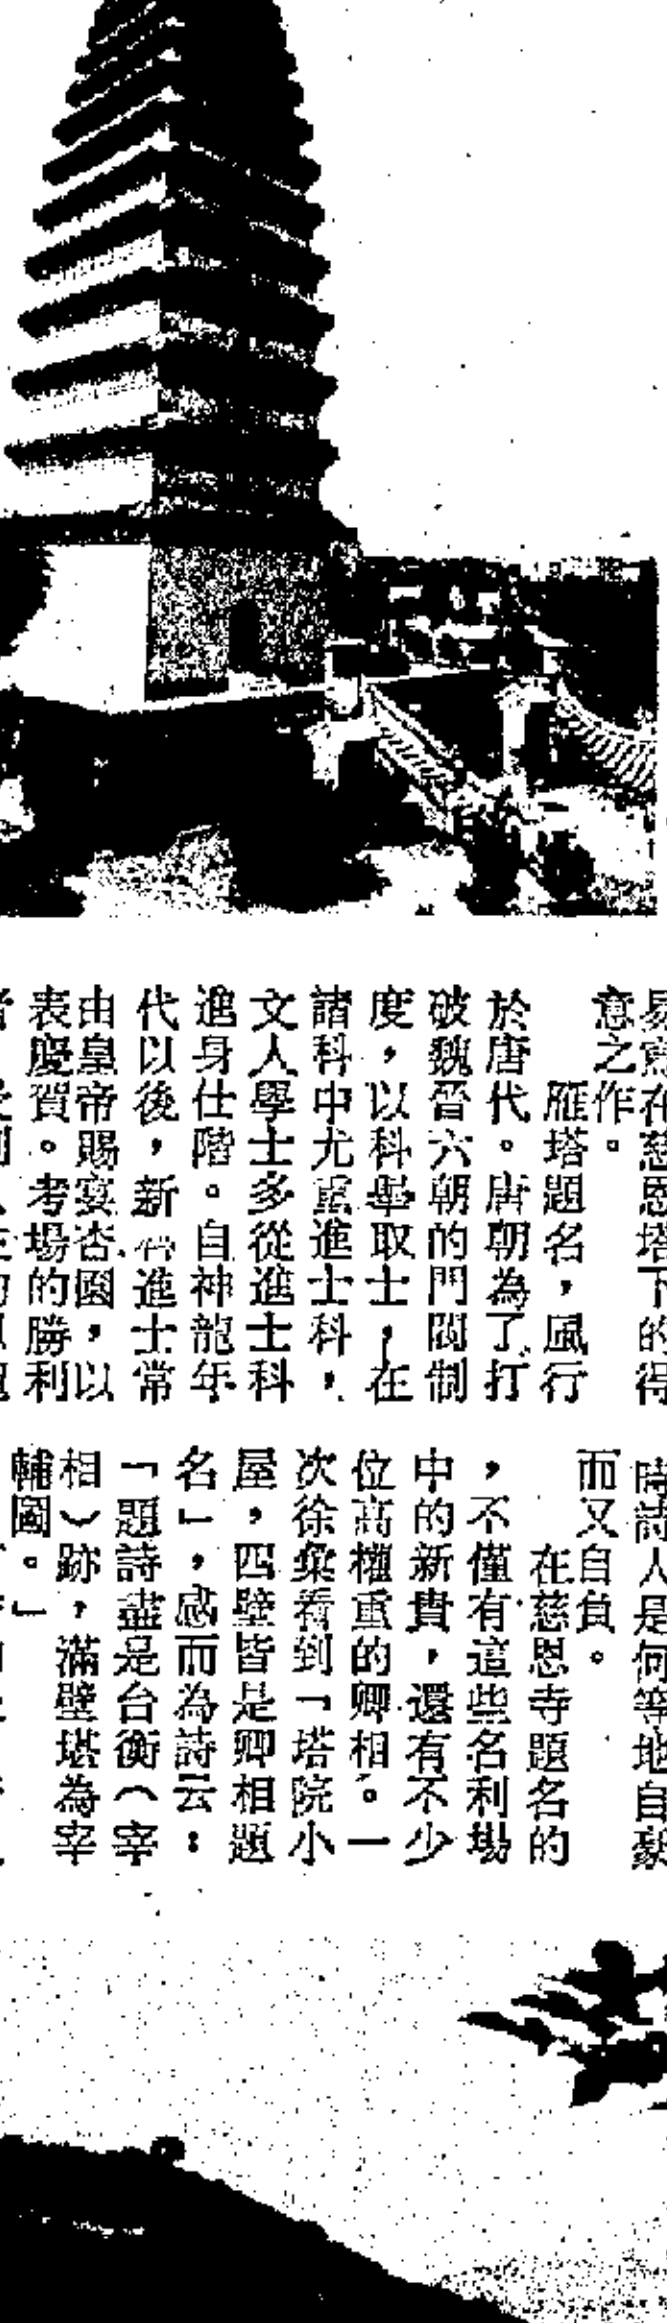 意之作。
雁塔題名，風行
於唐代。唐朝為了打
破魏晉六朝的門閥制
度，以科舉取士，在
諸科中尤重進士科，
文人學士多從進士科
進身仕階。自神龍年
代以後，新進士常
由皇帝賜宴杏園，以
表慶賀。考場的勝利
時詩人是何等地自豪
而又自負。
在慈恩寺題名的
，不僅有這些名利場
中的新貴，還有不少
位高權重的卿相。一
次徐彙看到「塔院小
屋，四壁皆是卿相題
名」，感而為詩云：
「題詩盡是台衡（宰
相）跡，滿壁堪為宰
輔圖。」